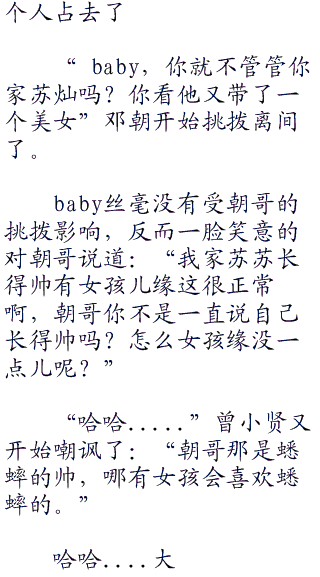 个人占去了
“ baby，你就不管管你
家苏灿吗？你看他又带了一
个美女”邓朝开始挑拨离间
了。
baby丝毫没有受朝哥的
挑拨影响，反而一脸笑意的
对朝哥说道：“我家苏苏长
得帅有女孩儿缘这很正常
啊，朝哥你不是一直说自己
长得帅吗？怎么女孩缘没一
点儿呢？”
“哈哈.....”曾小贤又
开始嘲讽了：“朝哥那是蟋
蟀的帅，哪有女孩会喜欢蟋
蟀的。”
哈哈....大